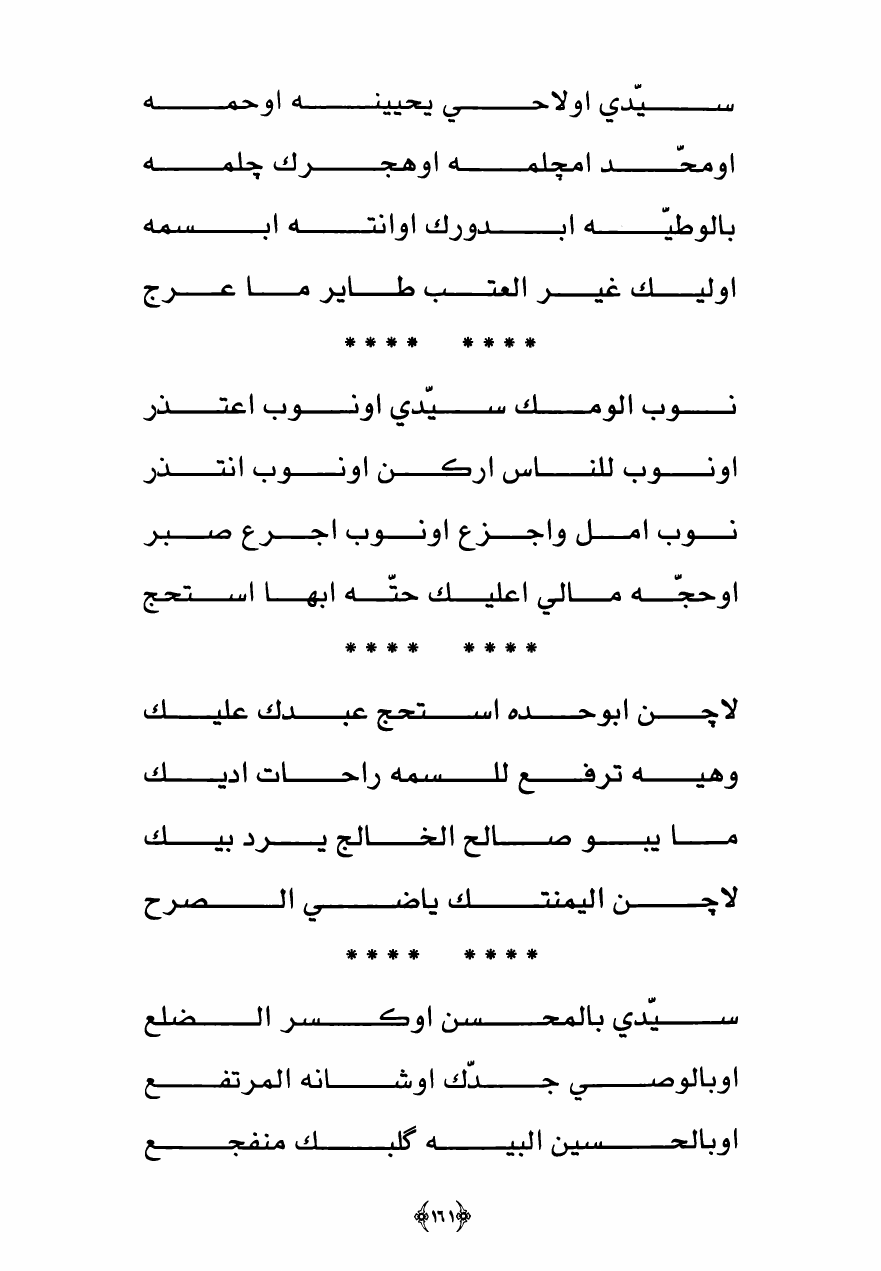 سيّدي اولاحي يحيينه اوحمه
اومحّد امچلمه اوهجرك چلمه
بالوطيّه ابدورك اوانته ابسمه
اوليك غير العتب طاير ما عرج
**** ****
نوب الومك سيّدي اونوب اعتذر
اونوب للناس اركن اونوب انتذر
نوب امل واجزع اونوب اجرع صبر
اوحجّه مالي اعليك حتّه ابها استحج
**** ****
لاچن ابوحده استحج عبدك عليك
وهيه ترفع للسمه راحات اديك
ما يبو صالح الخالج يرد بيك
لاچن اليمنتك ياضي الصرح
**** ****
سيّدي بالمحسن اوكسر الضلع
اوبالوصي جدّك اوشانه المرتفع
اوبالحسين البيه گلبك منفجع
﴿١٦١﴾